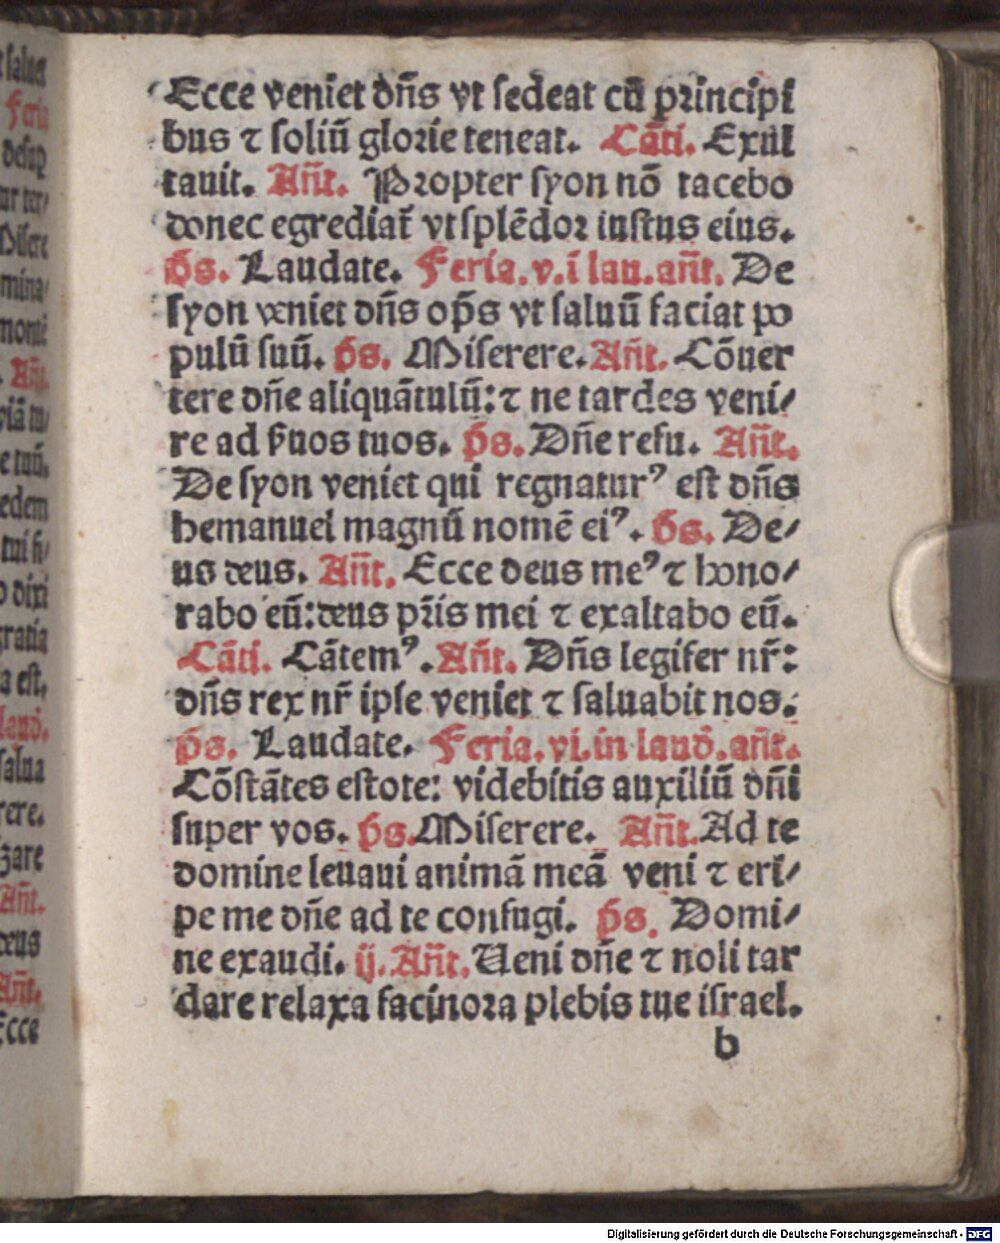 Ecce veniet dn̄s vt ſedeat cū principi
bus ⁊ ſoliū glorie teneat. Cāti. Exul
tauit. An̄t. Propter ſyon nō tacebo
donec egrediat᷑ vt ſplēdor iuſtus eius.
p̄s. Laudate. Feria. v. ī lau. an̄t. De
ſyon veniet dn̄s op̄s vt ſaluū faciat po
pulū ſuū. p̄s. Miſerere. An̄t. Cōuer
tere dn̄e aliquātulū: ⁊ ne tardes veni/
re ad ſ̄uos tuos. p̄s. Dn̄e refu. An̄t.
De ſyon veniet qui regnaturꝰ eſt dn̄s
hemanuel magnū nomē eiꝰ. p̄s. De/
us deus. An̄t. Ecce deus meꝰ ⁊ hono/
rabo eū: deus pr̄is mei ⁊ exaltabo eū.
Cāti. Cātemꝰ. An̄t. Dn̄s legifer nr̄:
dn̄s rex nr̄ ipſe veniet ⁊ ſaluabit nos.
p̄s. Laudate. Feria. vi. in laud̄. an̄t.
Cōſtātes eſtote: videbitis auxiliū dn̄i
ſuper vos. p̄s. Miſerere. An̄t. Ad te
domine leuaui animā meā veni ⁊ eri/
pe me dn̄e ad te confugi. p̄s. Domi/
ne exaudi. ij. An̄t. Ueni dn̄e ⁊ noli tar
dare relaxa facinora plebis tue iſrael.
b
Digitalisierung gefördert durch die Deutsche Forschungsgemeinschaft - DFG